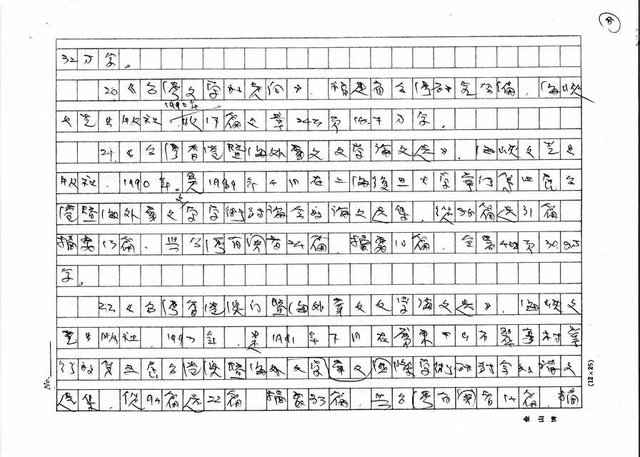 32万字。
20《台湾文学的走向》. 福建省台湾研究会编. 海峡
文艺出版社. 1990年. 收17篇文章 24万字 18.7万字。
21《台湾香港暨海外华文文学论文选》. 海峡文艺出
版社. 1990年. 是1989年4月在上海复旦大学举行第四届台
港暨海外华文文学学术讨论会的论文选集. 从96篇选31篇
摘要13篇. 与台湾有关者24篇. 摘要10篇. 全书484页 30.8万
字。
22《台湾香港澳门暨海外华文文学论文选》. 海峡文
艺出版社. 1993年. 是1991年7月在广东中山市翠亨村举
行的第五届台港澳暨海外华文文学国际学术研讨会的论文
选集. 从94篇选22篇 摘要33篇. 与台湾有关者14篇. 摘